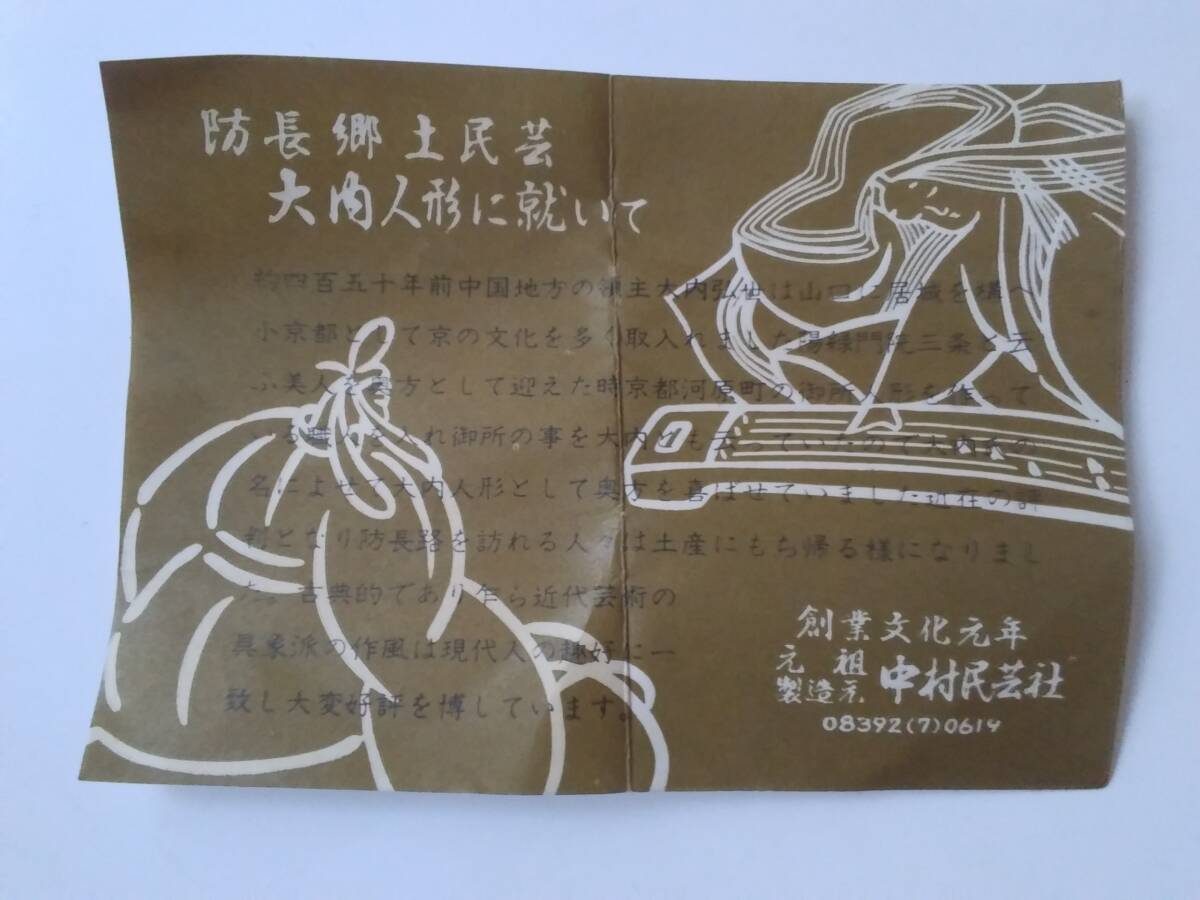 防長郷土民芸
大内人形に就いて
約四百五十年前中国地方の領主大内弘世は山口に居城を構へ
小京都として京の文化を多く取入れました陽緑門院三条と云
ふ美人を奥方として迎えた時京都河原町の御所人形を作って
いる職人を入れ御所の事を大内とも云っていたので大内氏の
名によせて大内人形として奥方を喜ばせていました近在の評
判となり防長路を訪れる人々は土産にもち帰る様になりまし
た。古典的であり乍ら近代芸術の
具象派の作風は現代人の趣好に一
致し大変好評を博しています。
創業文化元年
元祖
製造元
中村民芸社
08392(7)0619